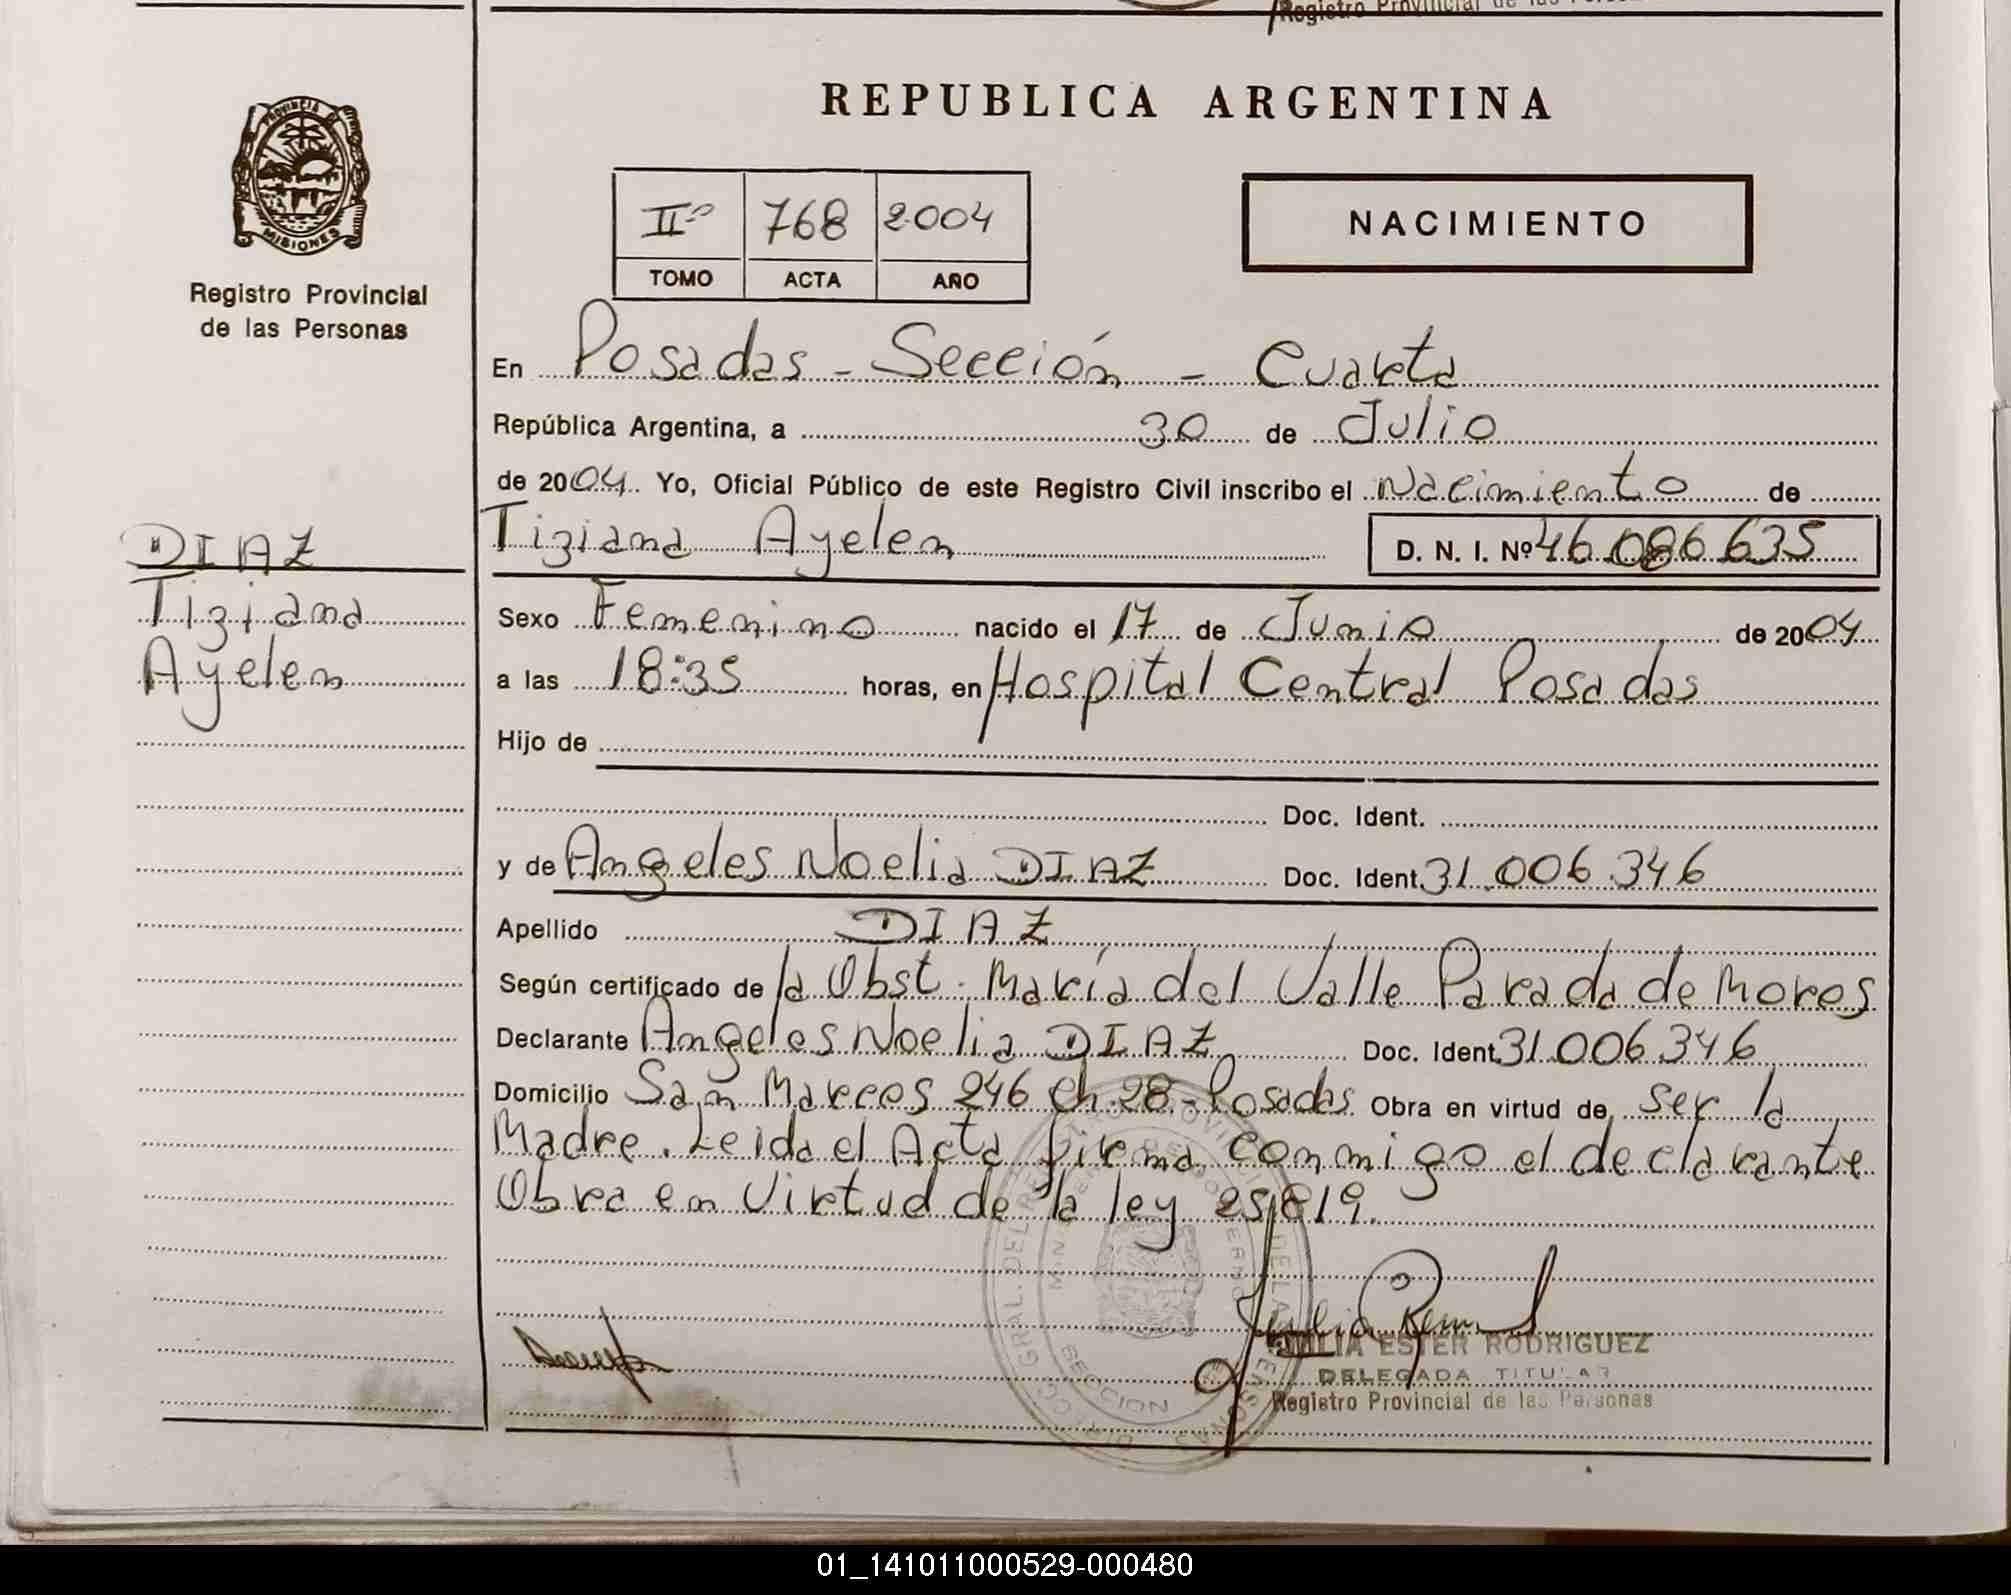 Registro Provincial de las Personas
REPUBLICA ARGENTINA
PROVINCIA DE
MISIONES
Registro Provincial
de las Personas
IIº 768 2004
TOMO ACTA AÑO
NACIMIENTO
En Posadas - Sección - Cuarta
República Argentina, a 30 de Julio
de 2004. Yo, Oficial Público de este Registro Civil inscribo el Nacimiento de
Tiziana Ayelen D. N. I. Nº 46.086.635
DIAZ
Tiziana
Ayelen
Sexo Femenino nacido el 17 de Junio de 2004
a las 18:35 horas, en Hospital Central Posadas
Hijo de
Doc. Ident.
y de Angeles Noelia DIAZ Doc. Ident. 31.006.346
Apellido DIAZ
Según certificado de la Obst. María del Valle Parada de Mores
Declarante Angeles Noelia DIAZ Doc. Ident. 31.006.346
Domicilio San Marcos 246 Ch. 28 - Posadas Obra en virtud de ser la
Madre. Leida el Acta firma conmigo el declarante
Obra en Virtud de la ley 25.819.
JULIA ESTER RODRIGUEZ
DELEGADA TITULAR
Registro Provincial de las Personas
01_141011000529-000480